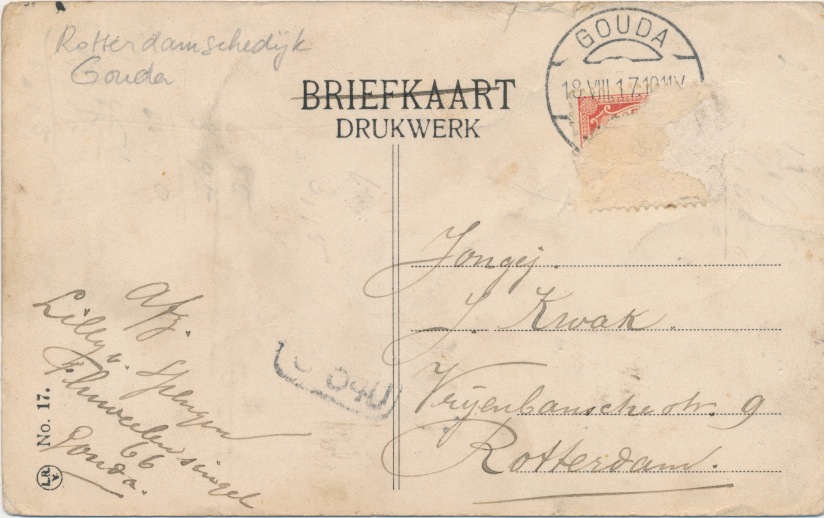 Rotterdamschedijk
Gouda
GOUDA
18 VIII 17
BRIEFKAART
DRUKWERK
Jongej.
J. Kwak.
Vrijenbansche str. 9
Rotterdam.
Afz.
Lilly v. Spengen
Fluweelensingel
66
Gouda.
No. 17.
LR